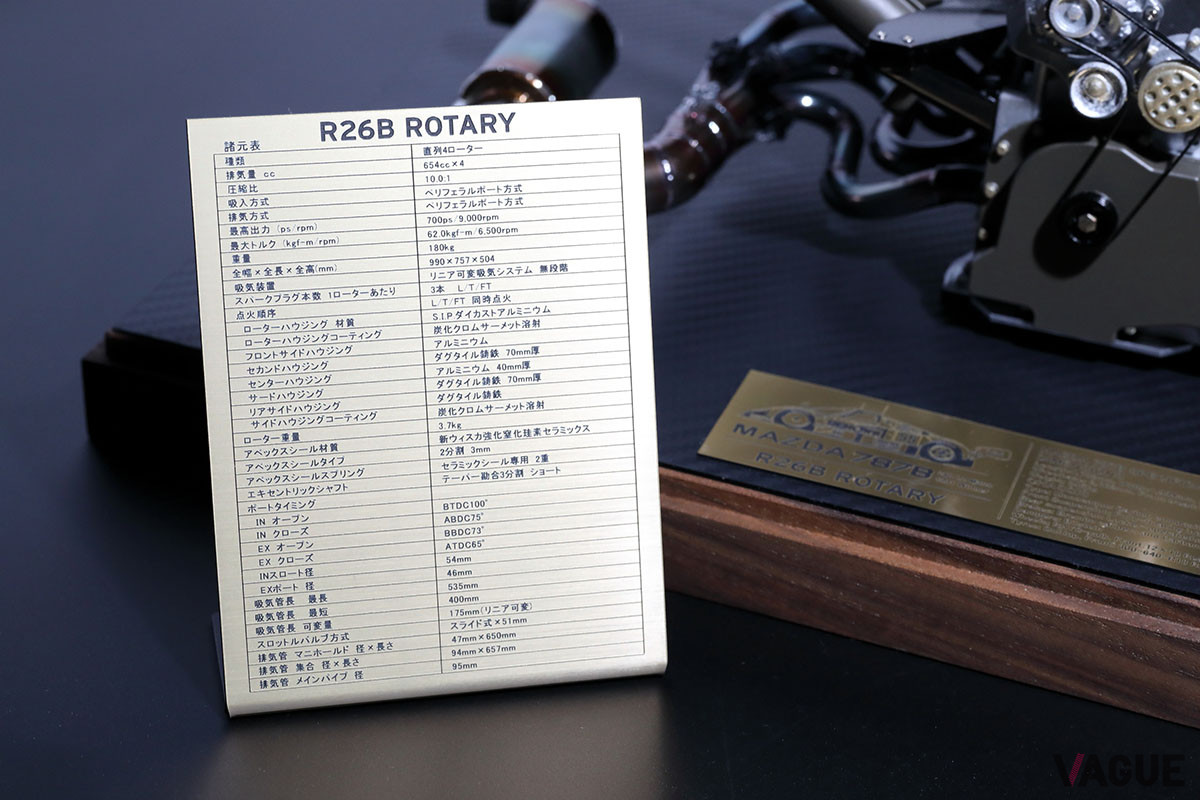 R26B ROTARY
諸元表
種類 直列4ローター
排気量 cc 654cc×4
圧縮比 10.0:1
吸入方式 ペリフェラルポート方式
排気方式 ペリフェラルポート方式
最高出力 (ps/rpm) 700ps/9,000rpm
最大トルク (kgf-m/rpm) 62.0kgf-m/6,500rpm
重量 180kg
全幅×全長×全高(mm) 990×757×504
吸気装置 リニア可変吸気システム 無段階
スパークプラグ本数 1ローターあたり 3本 L/T/FT
点火順序 L/T/FT 同時点火
ローターハウジング 材質 S.I.Pダイカストアルミニウム
ローターハウジングコーティング 炭化クロムサーメット溶射
フロントサイドハウジング アルミニウム
セカンドハウジング ダグタイル鋳鉄 70mm厚
センターハウジング アルミニウム 40mm厚
サードハウジング ダグタイル鋳鉄 70mm厚
リアサイドハウジング ダグタイル鋳鉄
サイドハウジングコーティング 炭化クロムサーメット溶射
ローター重量 3.7kg
アペックスシール材質 新ウィスカ強化窒化珪素セラミックス
アペックスシールタイプ 2分割 3mm
アペックスシールスプリング セラミックシール専用 2重
エキセントリックシャフト テーパー勘合3分割 ショート
ポートタイミング
IN オープン BTDC100°
IN クローズ ABDC75°
EX オープン BBDC73°
EX クローズ ATDC65°
INスロート径 54mm
EXポート 径 46mm
吸気管長 最長 535mm
吸気管長 最短 400mm
吸気管長 可変量 175mm(リニア可変)
スロットルバルブ方式 スライド式×51mm
排気管 マニホールド 径×長さ 47mm×650mm
排気管 集合 径×長さ 94mm×657mm
排気管 メインパイプ 径 95mm
MAZDA 787B
R26B ROTARY
VAGUE